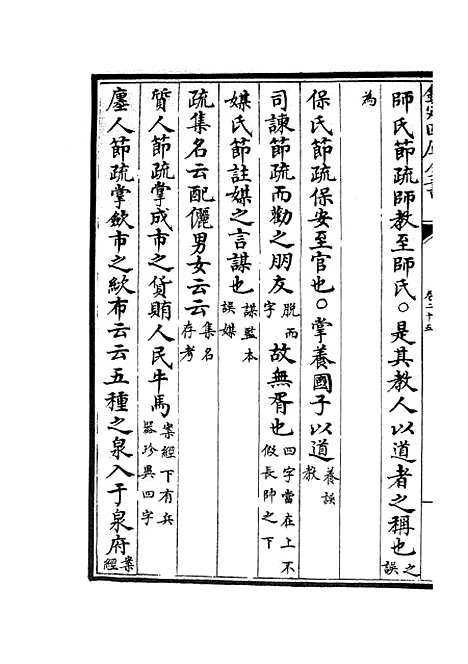 欽定四庫全書
卷二十五
師氏節疏師教至師氏○是其教人以道者之稱也之誤
為
保氏節疏保安至官也○掌養國子以道養誤教
司諫節疏而勸之朋友脱而字故無胥也四字當在上不假長帥之下
媒氏節註媒之言謀也謀監本誤媒
疏集名云配儷男女云云集名存考
質人節疏掌成市之貨賄人民牛馬案經下有兵器珍異四字
廛人節疏掌斂市之絘布云云五種之泉入于泉府案經